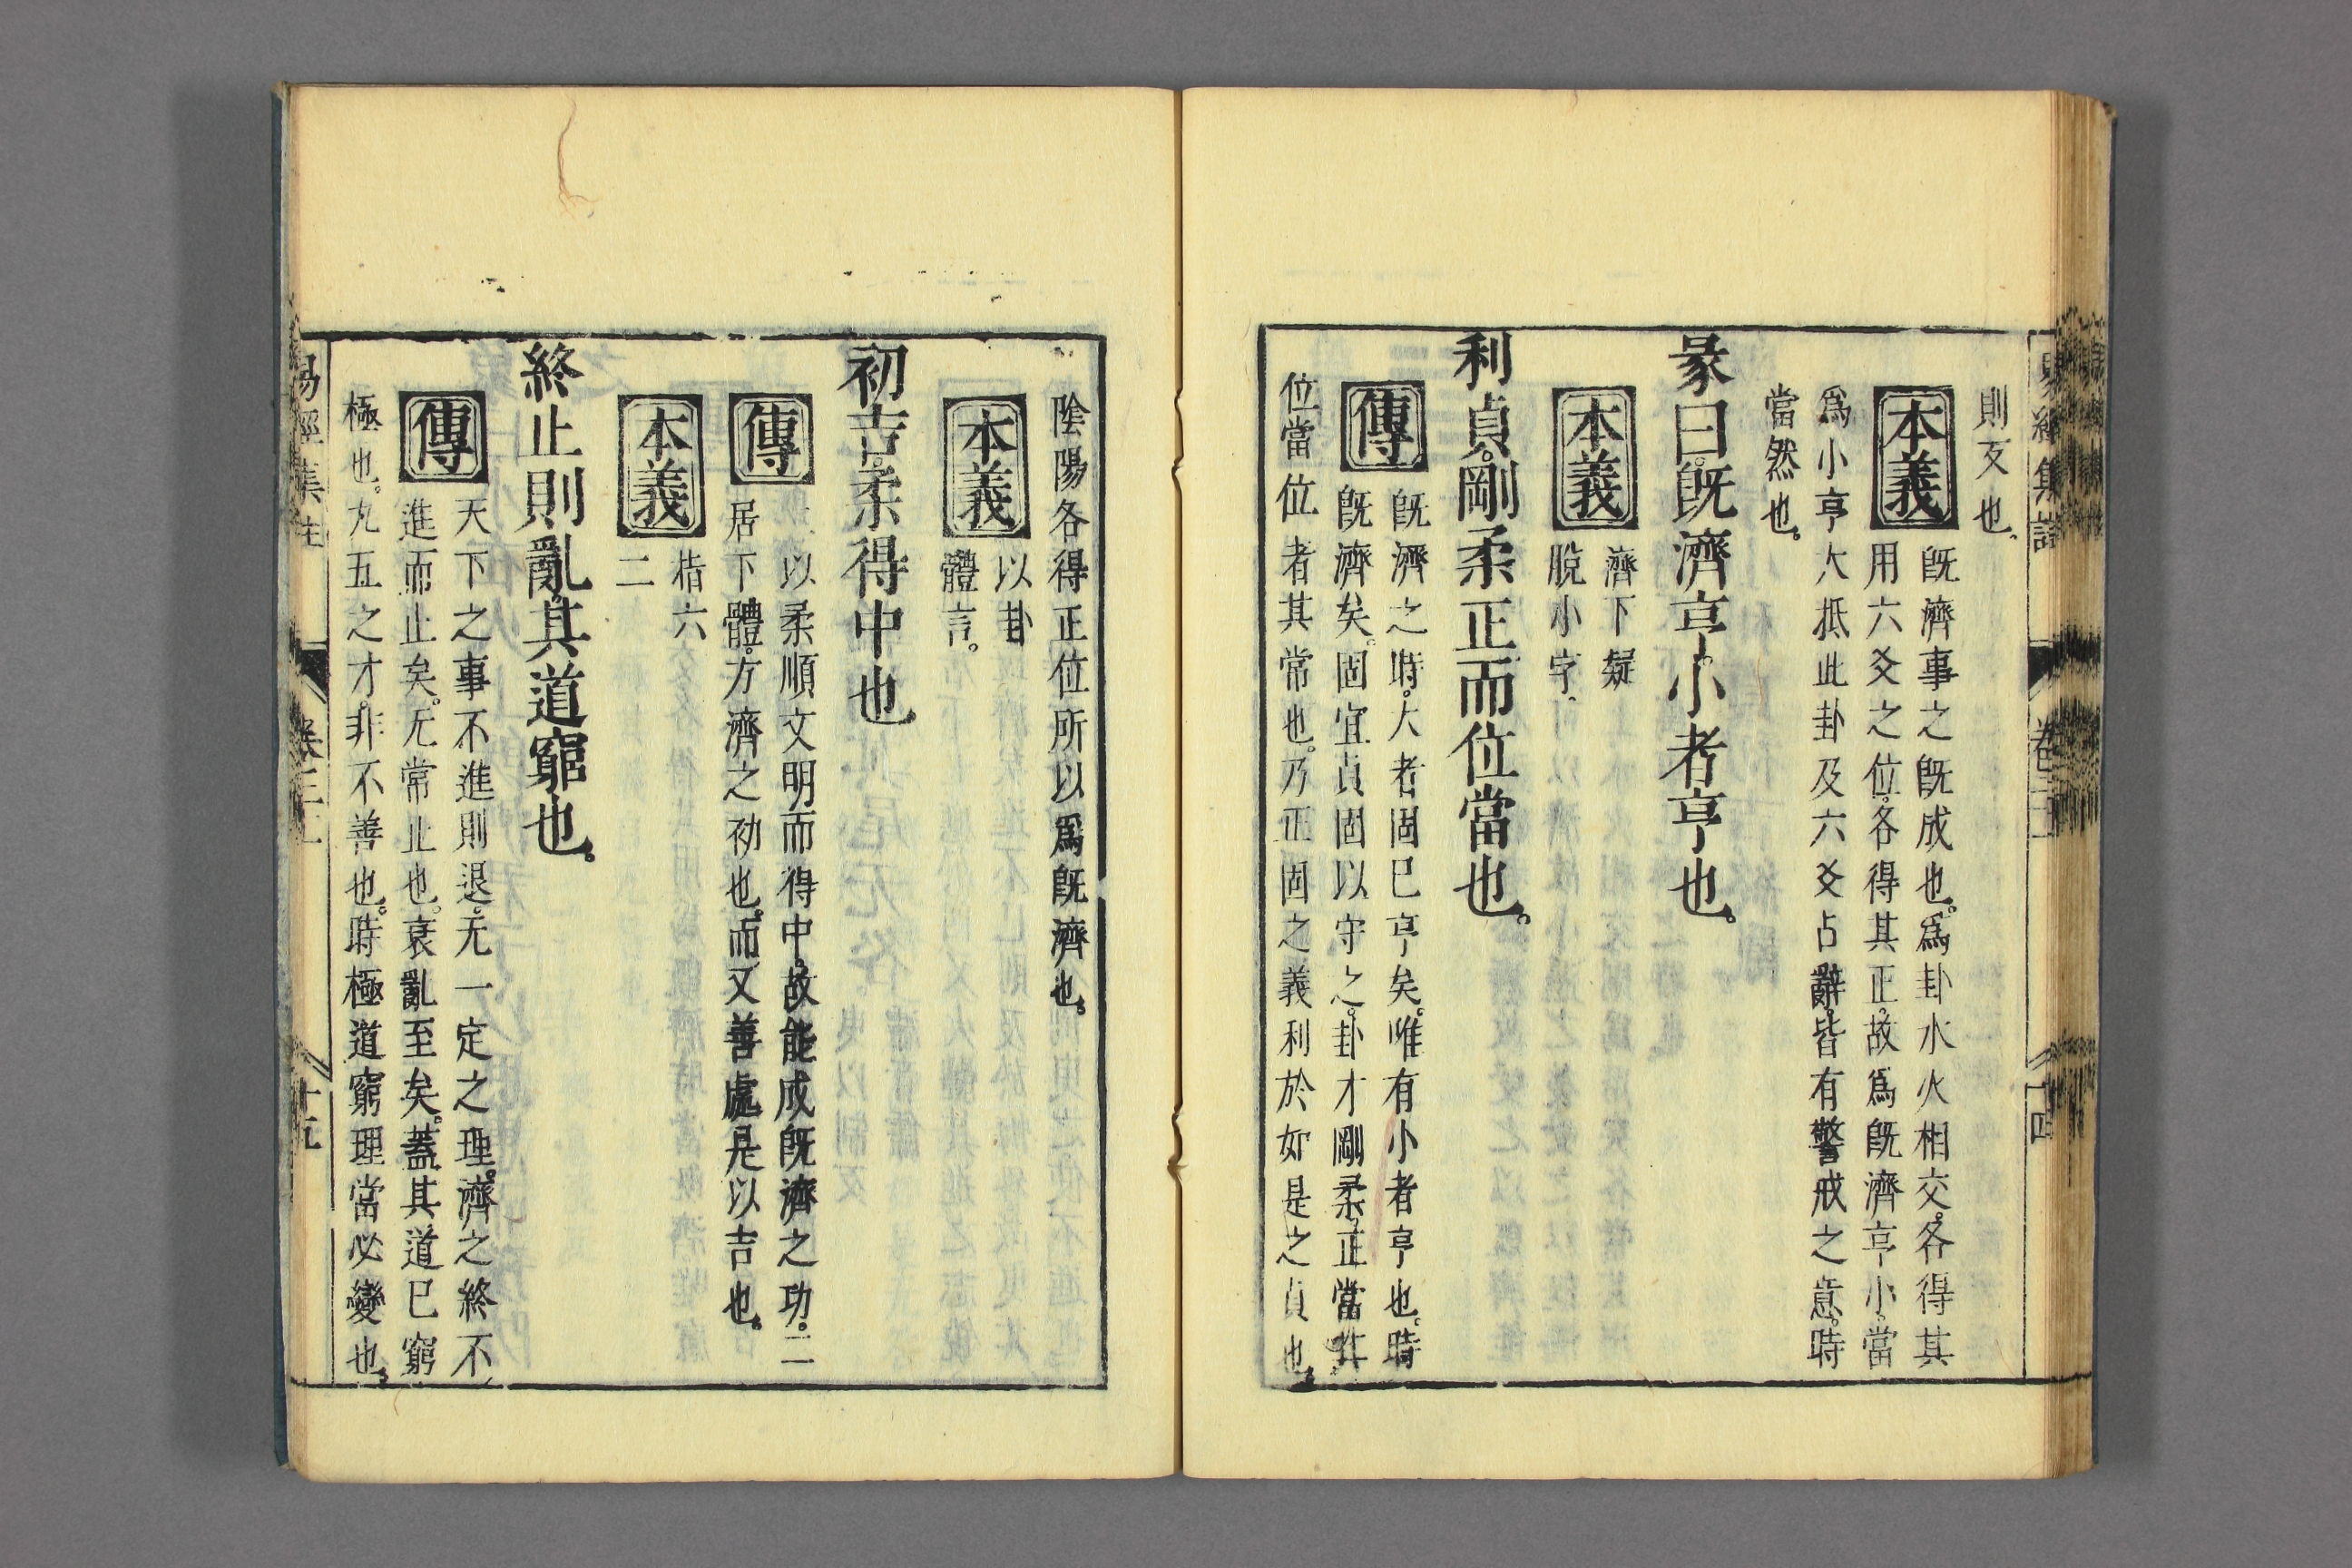 則亥也
本義
既濟事之既成也。爲卦水火相交。各得其
用六爻之位。各得其正。故爲既濟亨小。當
爲小亨大抵此卦及六爻占辭。皆有警戒之意。時
當然也。
彖曰。既濟亨。小者亨也。
本義
濟下疑
脫小字。
利貞。剛柔正而位當也。
傳
既濟之時。大者固已亨矣。唯有小者亨也。時
既濟矣。固宜貞固以守之。卦才剛柔。正當其
位當位者其常也。乃正固之義利於如是之貞也。
陰陽各得正位所以爲既濟也。
本義
以卦
體言。
初吉。柔得中也
傳
以柔順文明而得中。故能成既濟之功。二
居下體。方濟之初也。而又善處。是以吉也。
本義
指六
二
終止則亂。其道窮也。
傳
天下之事不進則退。无一定之理。濟之終不
進而止矣。无常止也。衰亂至矣。蓋其道已窮
極也。九五之才。非不善也。時極道窮理當必變也。
易經集註
卷三
十五